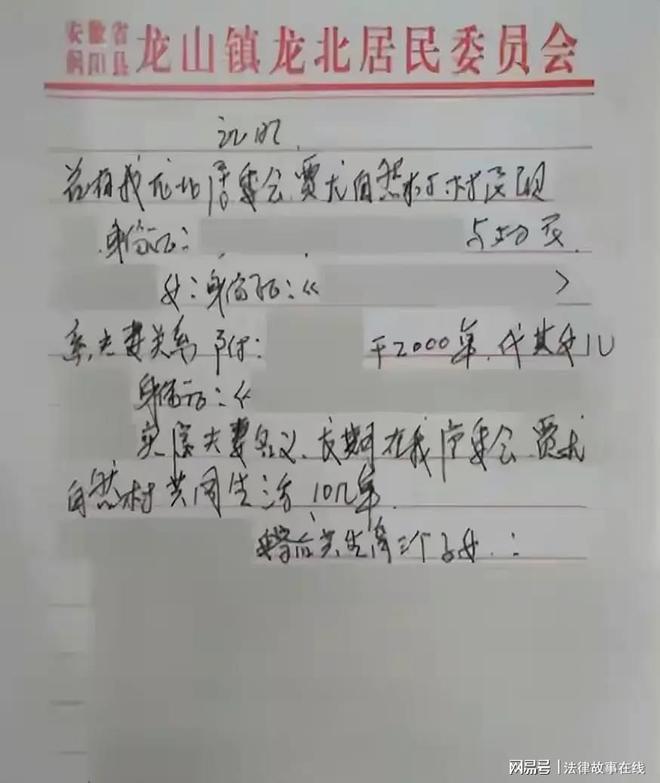 安徽省
枞阳县 龙山镇龙北居民委员会
证明
兹有我龙北居委会贾龙自然村村民
身份证：
女：身份证：《 》
系夫妻关系 于2000年
身份证：《
实属夫妻名义、长期在我居委会贾龙
自然村共同生活10几年
婚后共生育三个子女：
网易号 | 法律故事在线